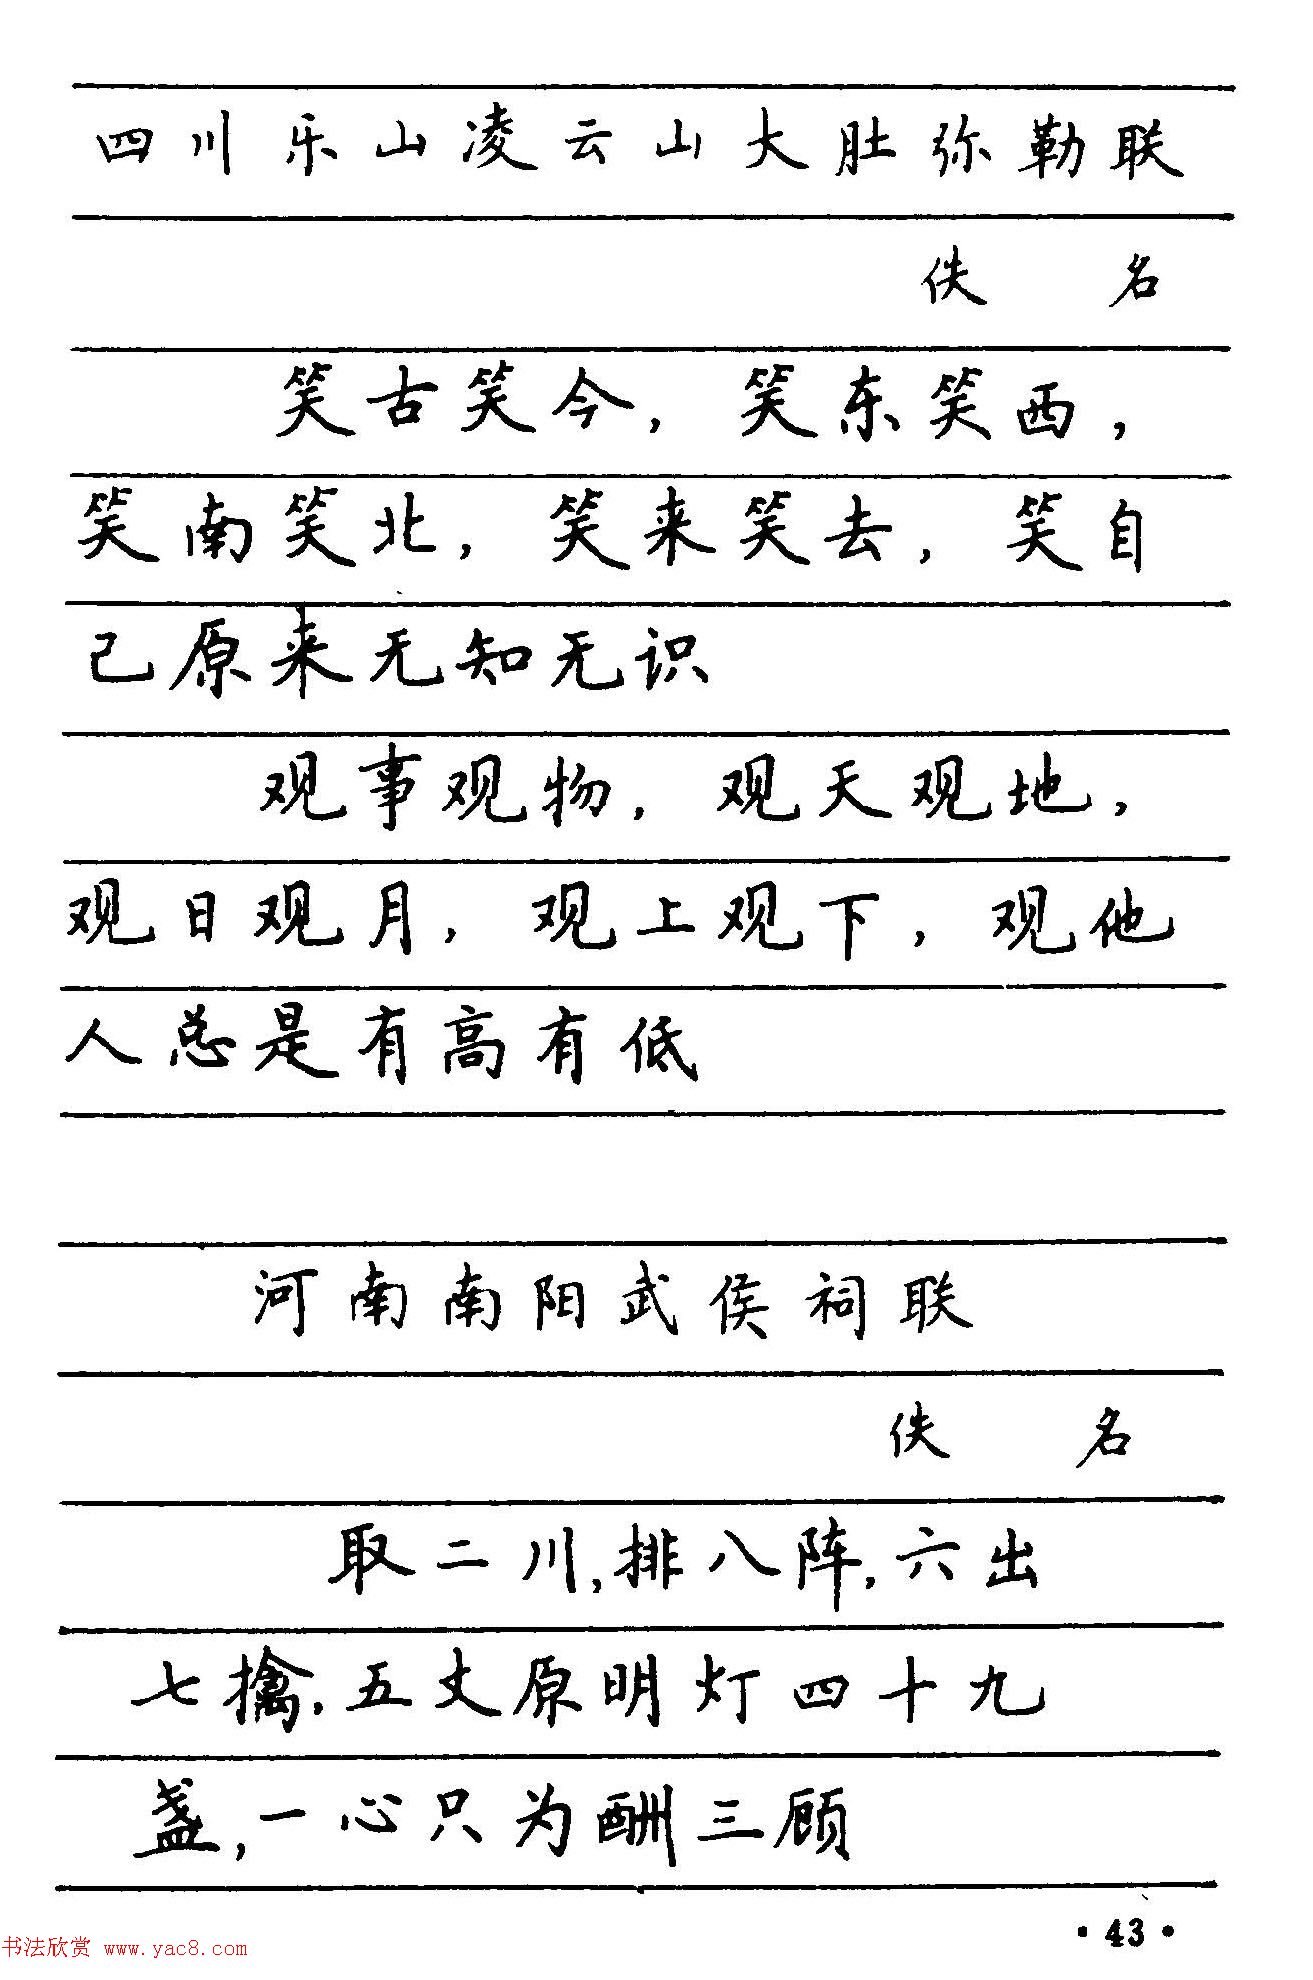 四川乐山凌云山大肚弥勒联
佚 名
笑古笑今，笑东笑西，
笑南笑北，笑来笑去，笑自
己原来无知无识
观事观物，观天观地，
观日观月，观上观下，观他
人总是有高有低
河南南阳武侯祠联
佚 名
取二川，排八阵，六出
七擒，五丈原明灯四十九
盏，一心只为酬三顾
·43·
书法欣赏 www.yac8.com